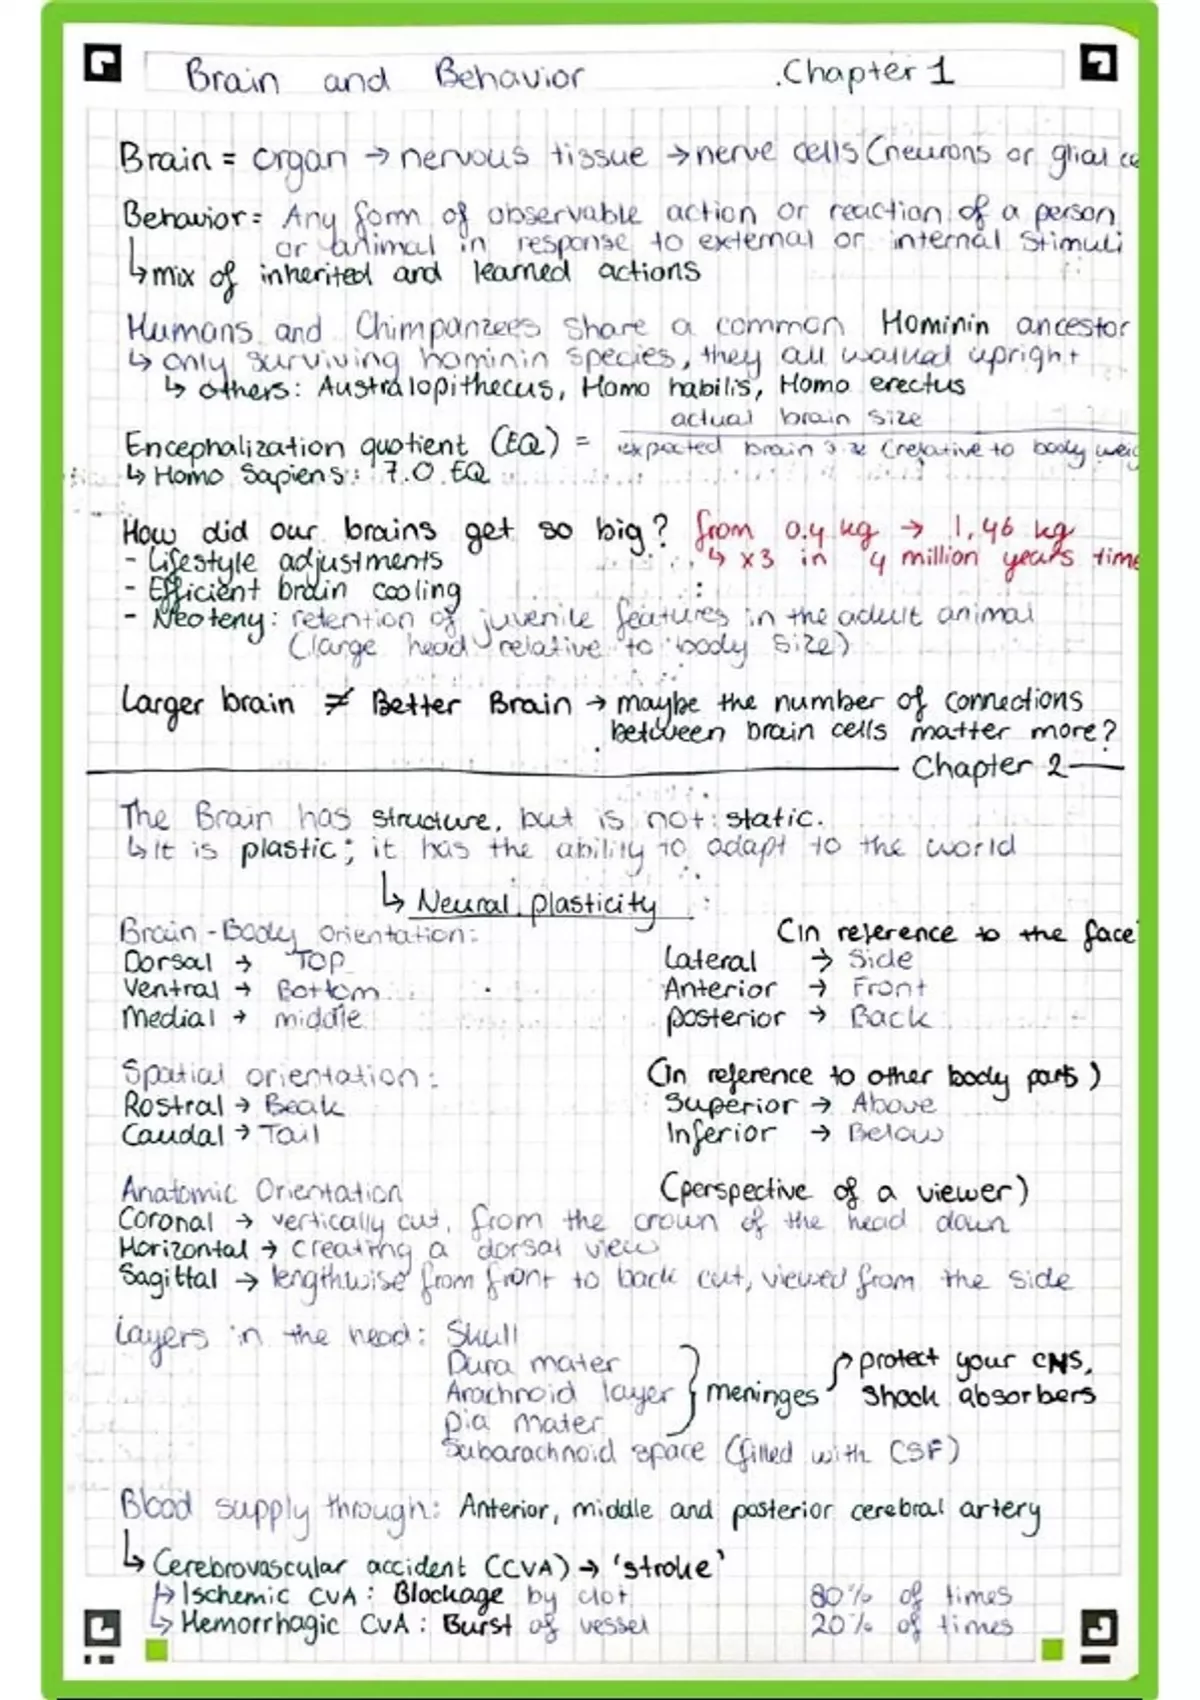 Brain and Behavior .Chapter 1
Brain = organ → nervous tissue → nerve cells (neurons or glial ce
Behavior = Any form of observable action or reaction of a person
or animal in response to external or internal stimuli
↳ mix of inherited and learned actions
Humans and Chimpanzees share a common Hominin ancestor
↳ only surviving hominin species, they all walked upright
↳ others: Australopithecus, Homo habilis, Homo erectus
actual brain size
Encephalization quotient (EQ) = expected brain size (relative to body weig
↳ Homo Sapiens: 7.0 EQ
How did our brains get so big? from 0.4 kg → 1,46 kg
- Lifestyle adjustments ↳ x3 in 4 million years time
- Efficient brain cooling
- Neoteny: retention of juvenile features in the adult animal
(large head relative to body size)
Larger brain ≠ Better Brain → maybe the number of connections
between brain cells matter more?
Chapter 2
The Brain has structure, but is not static.
↳ It is plastic; it has the ability to adapt to the world
↳ Neural plasticity
Brain-Body orientation: (in reference to the face
Dorsal → Top Lateral → Side
Ventral → Bottom Anterior → Front
Medial → middle posterior → Back
Spatial orientation: (in reference to other body parts)
Rostral → Beak Superior → Above
Caudal → Tail Inferior → Below
Anatomic Orientation (perspective of a viewer)
Coronal → vertically cut, from the crown of the head down
Horizontal → creating a dorsal view
Sagittal → lengthwise from front to back cut, viewed from the side
Layers in the head: Skull
Dura mater protect your CNS,
Arachnoid layer } meninges shock absorbers
Pia mater
Subarachnoid space (filled with CSF)
Blood supply through: Anterior, middle and posterior cerebral artery
↳ Cerebrovascular accident (CVA) → 'stroke'
↳ Ischemic CVA: Blockage by clot 80% of times
↳ Hemorrhagic CVA: Burst of vessel 20% of times